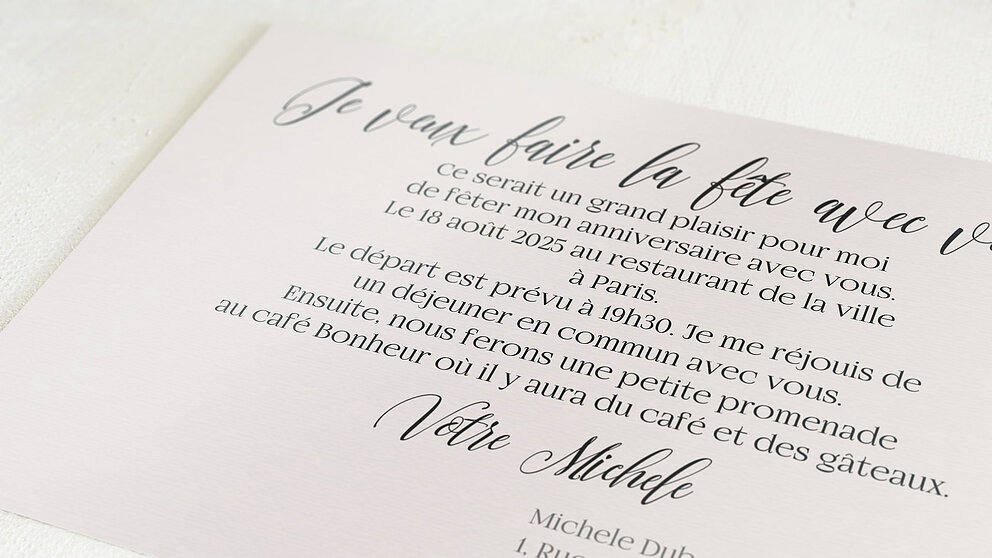 Je veux faire la fête avec
Ce serait un grand plaisir pour moi
de fêter mon anniversaire avec vous.
Le 18 août 2025 au restaurant de la ville
à Paris.
Le départ est prévu à 19h30. Je me réjouis de
un déjeuner en commun avec vous.
Ensuite, nous ferons une petite promenade
au café Bonheur où il y aura du café et des gâteaux.
Votre Michele
Michele
1, Rue